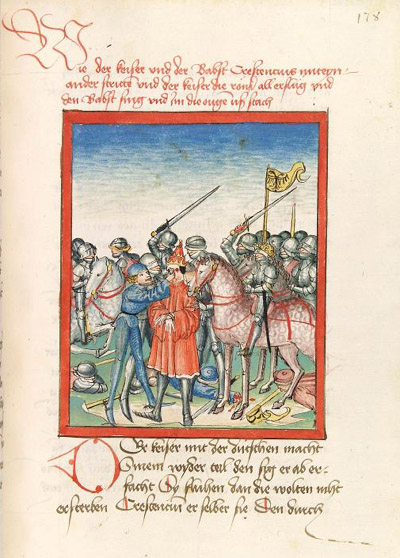 178
Wie der keiser vnd der Babst Crescencius mitein
ander stritten vnd der keiser die romer all erslug vnd
den Babst fing vnd im die ougen uß stach
Der keiser mit der dutschen macht
Sinem wyder teil den sig er ab er
facht Sy fluhen dan die wolten niht
ersterben Crescencius er selber sie Den durch